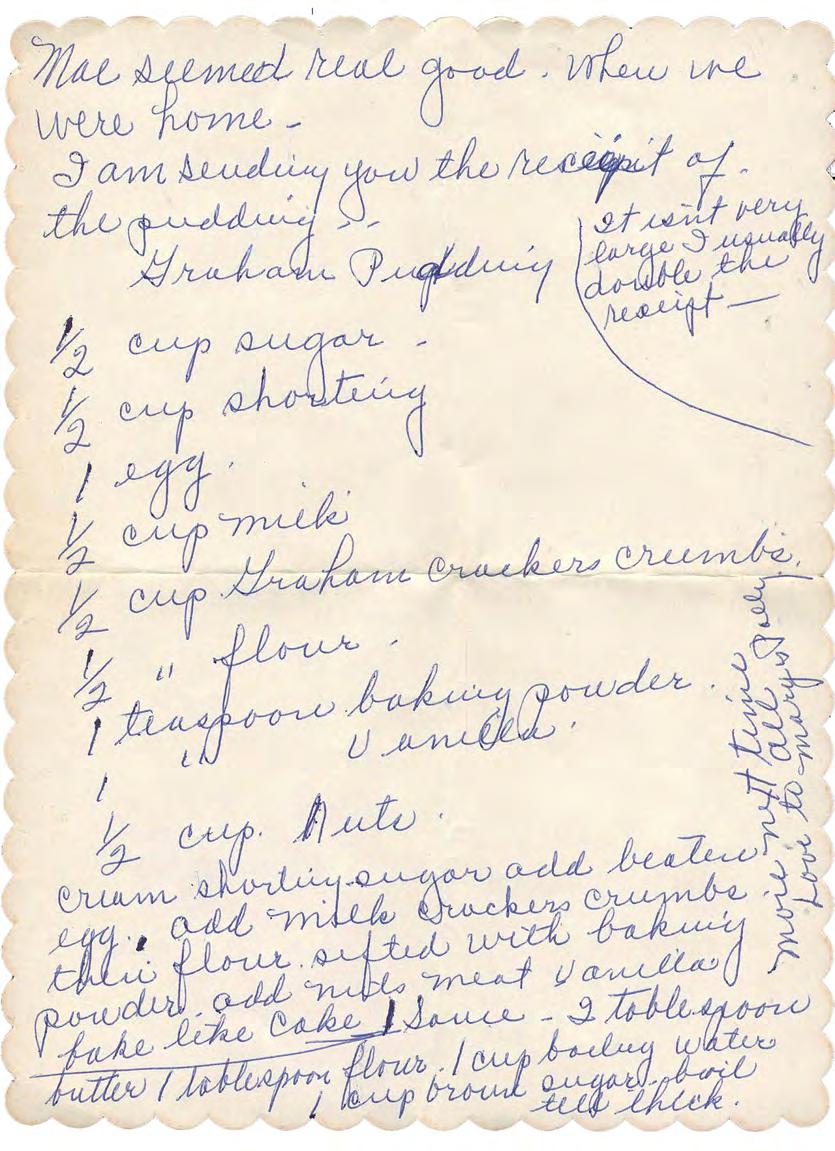 Mae seemed real good. When we
were home -
I am sending you the receipit of.
the pudding --
Graham Pudding
It isn't very
large I usually
double the
receipt —
1/2 cup sugar -
1/2 cup shorting
1 egg.
1/2 cup milk
1/2 cup Graham crackers crumbs.
1/2 " flour -
1 teaspoon baking powder.
1 " Vanilla.
1/2 cup. Nuts.
cream shorting sugar add beaten
egg. add milk crackers crumbs
then flour sifted with baking
powder. add nuts meat Vanilla
bake like cake
Sauce - 2 tablespoon
butter 1 tablespoon flour. 1 cup boiling water
1 cup brown sugar. boil
till thick.
more next time
Love to all
Mary &